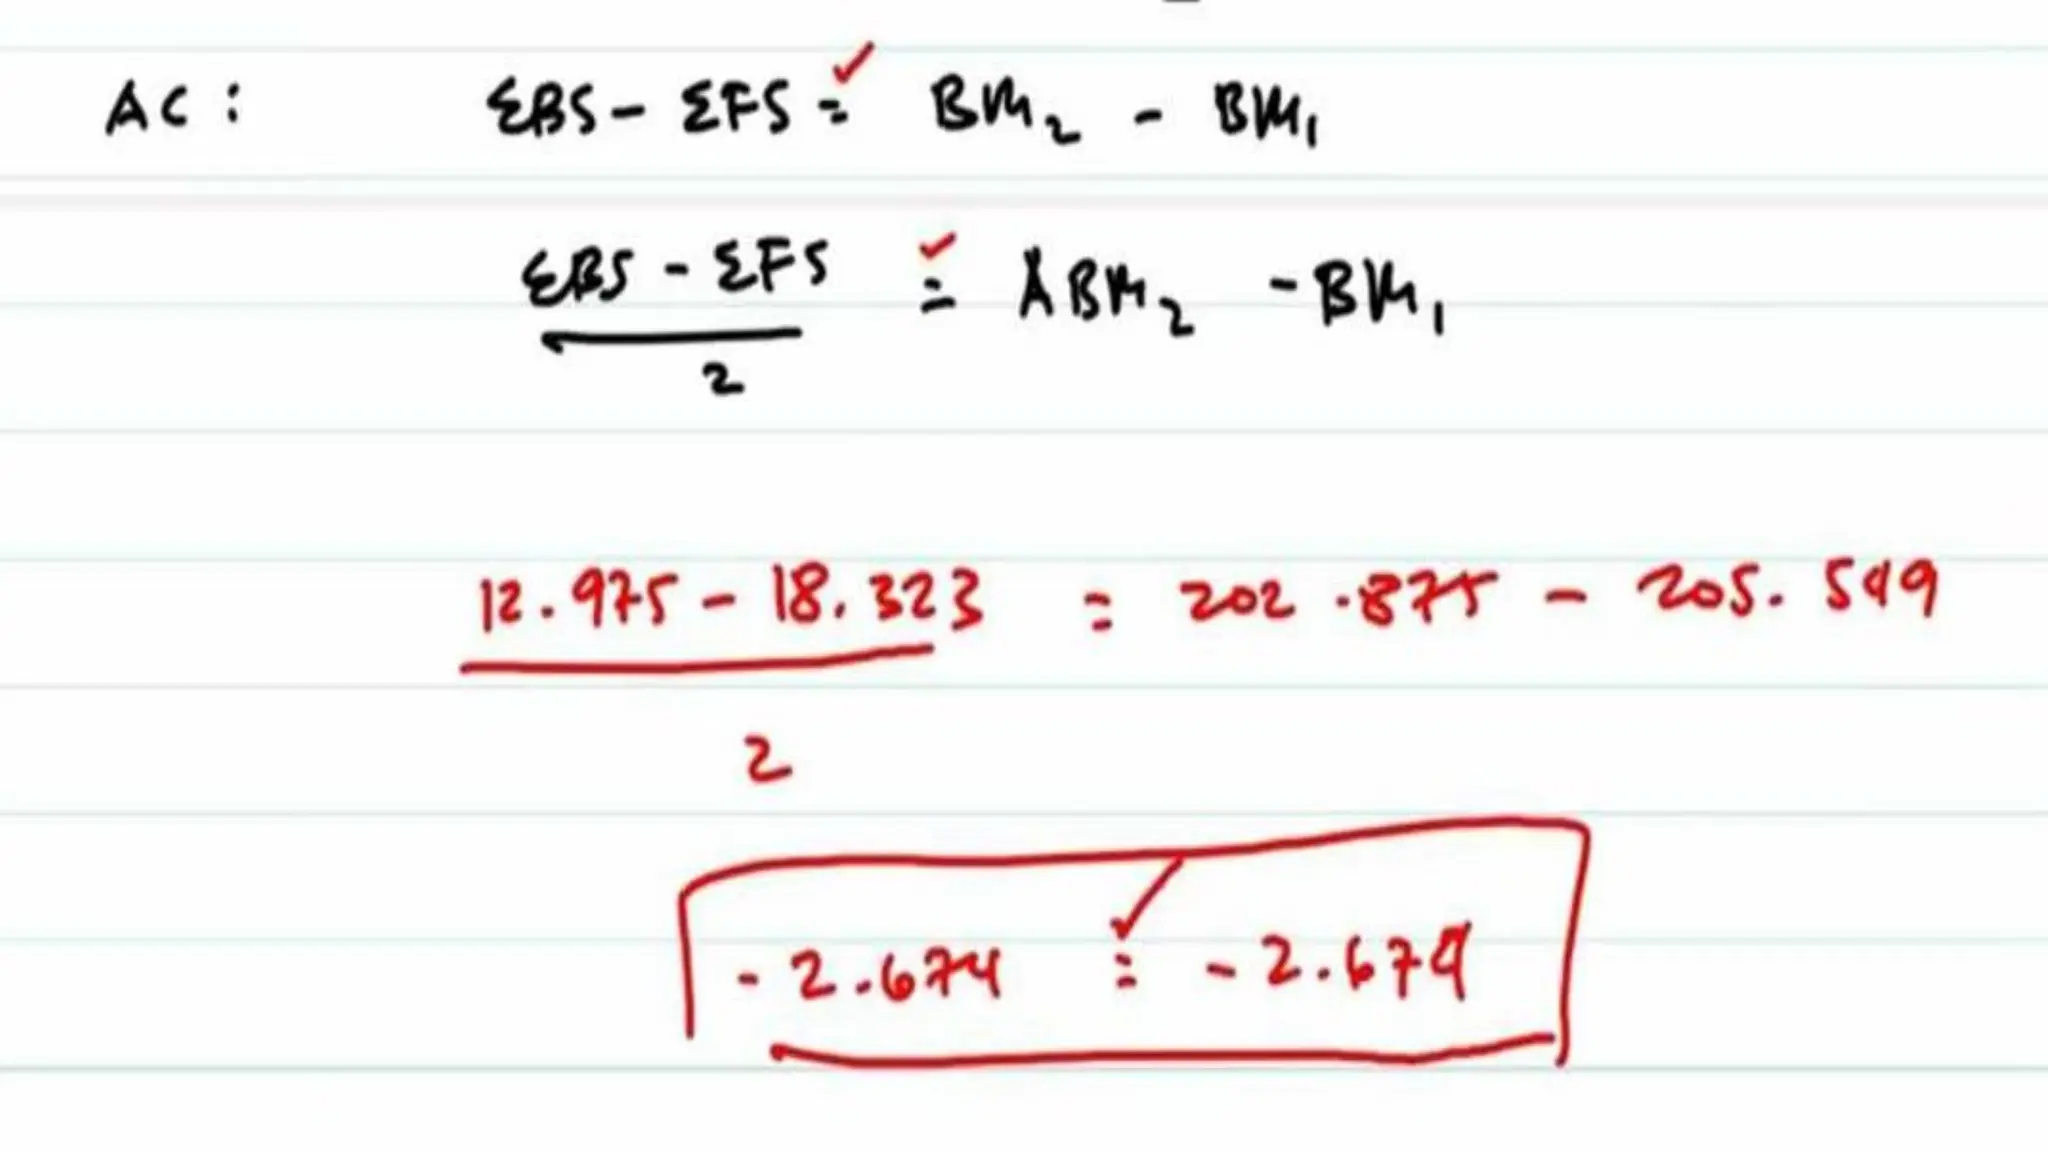 AC: ΣBS - ΣFS = BM₂ - BM₁
ΣBS - ΣFS = ABM₂ - BM₁
2
12.975 - 18.323 = 202.875 - 205.549
2
-2.674 = -2.674